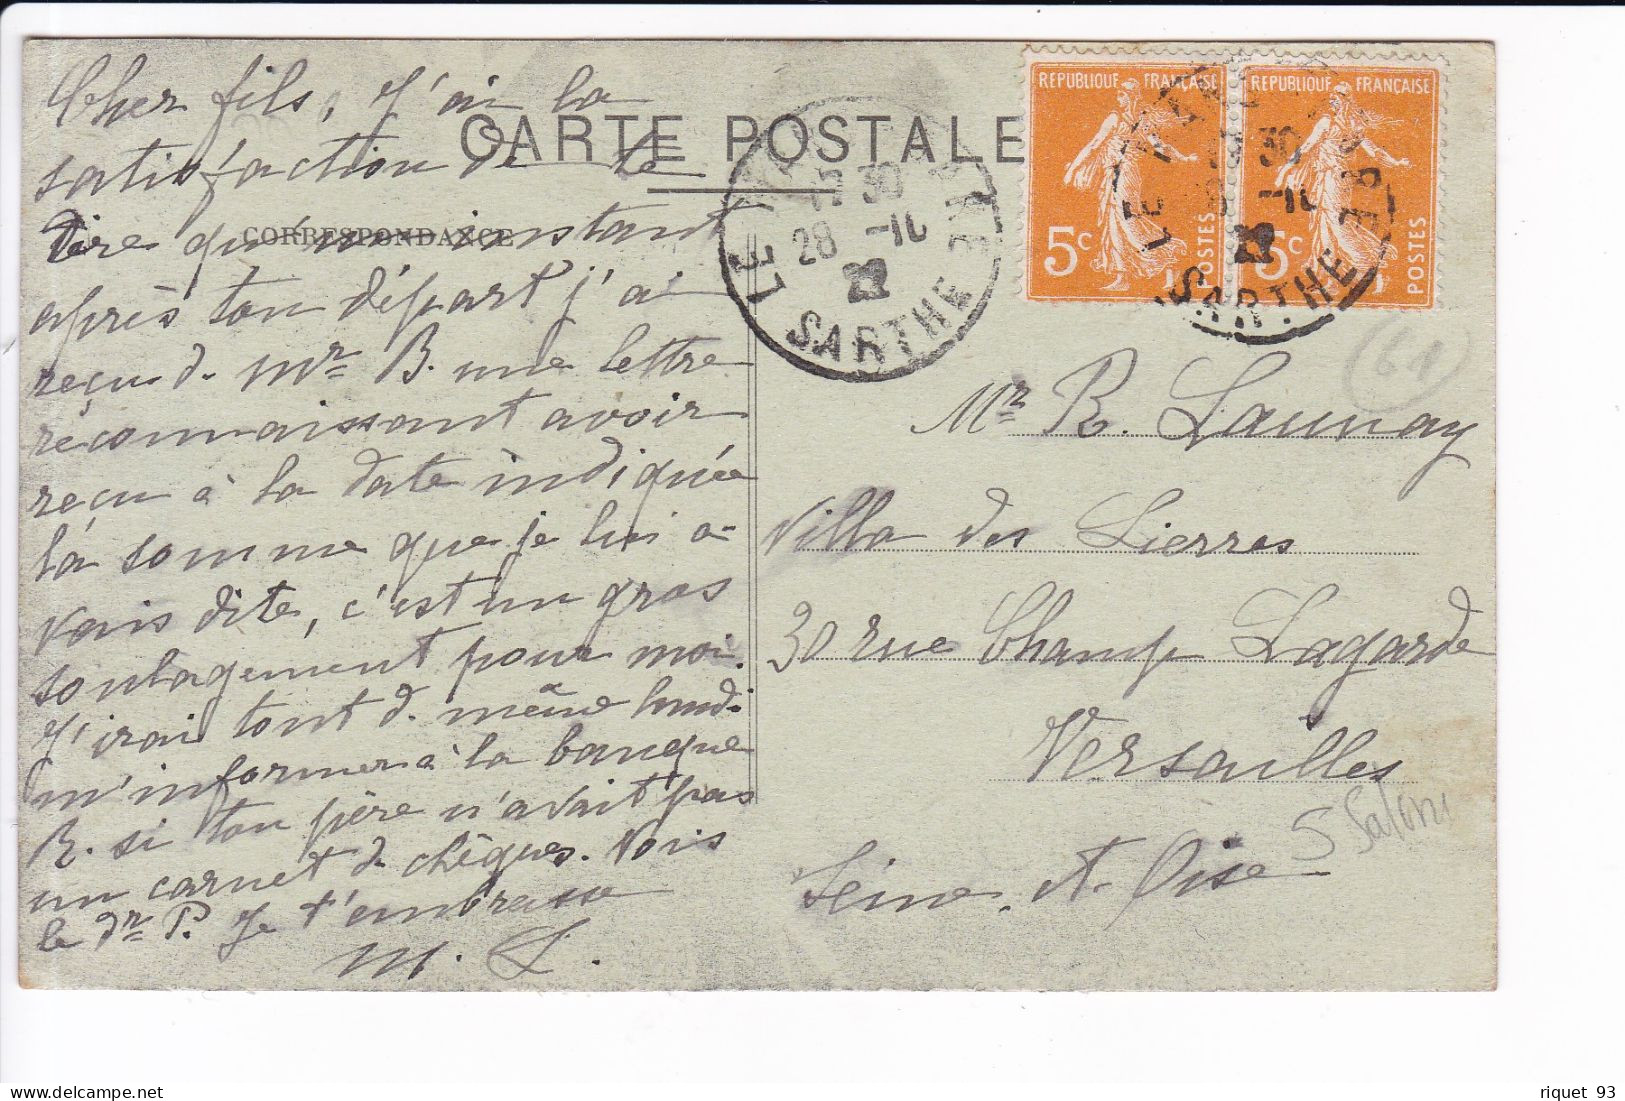 Cher fils, J'ai la
satisfaction de te
dire qu'un instant
après ton départ j'ai
reçu d. Mr B. une lettre
reconnaissant avoir
reçu à la date indiquée
la somme que je lui a-
vais dite, c'est un gros
soulagement pour moi.
J'irai tout d. même lundi
m'informer à la banque
R. si ton père n'avait pas
un carnet d. chèques. Vois
le dr P. Je t'embrasse
M. L.
CARTE POSTALE
CORRESPONDANCE
LE
30
28 -10
22
SARTHE
REPUBLIQUE FRANÇAISE
5c
POSTES
REPUBLIQUE FRANÇAISE
5c
POSTES
LE
30
-10
22
SARTHE
61
Mr R. Launay
Villa des Lierres
30 rue Champ Lagarde
Versailles
Seine et Oise
5
riquet 93